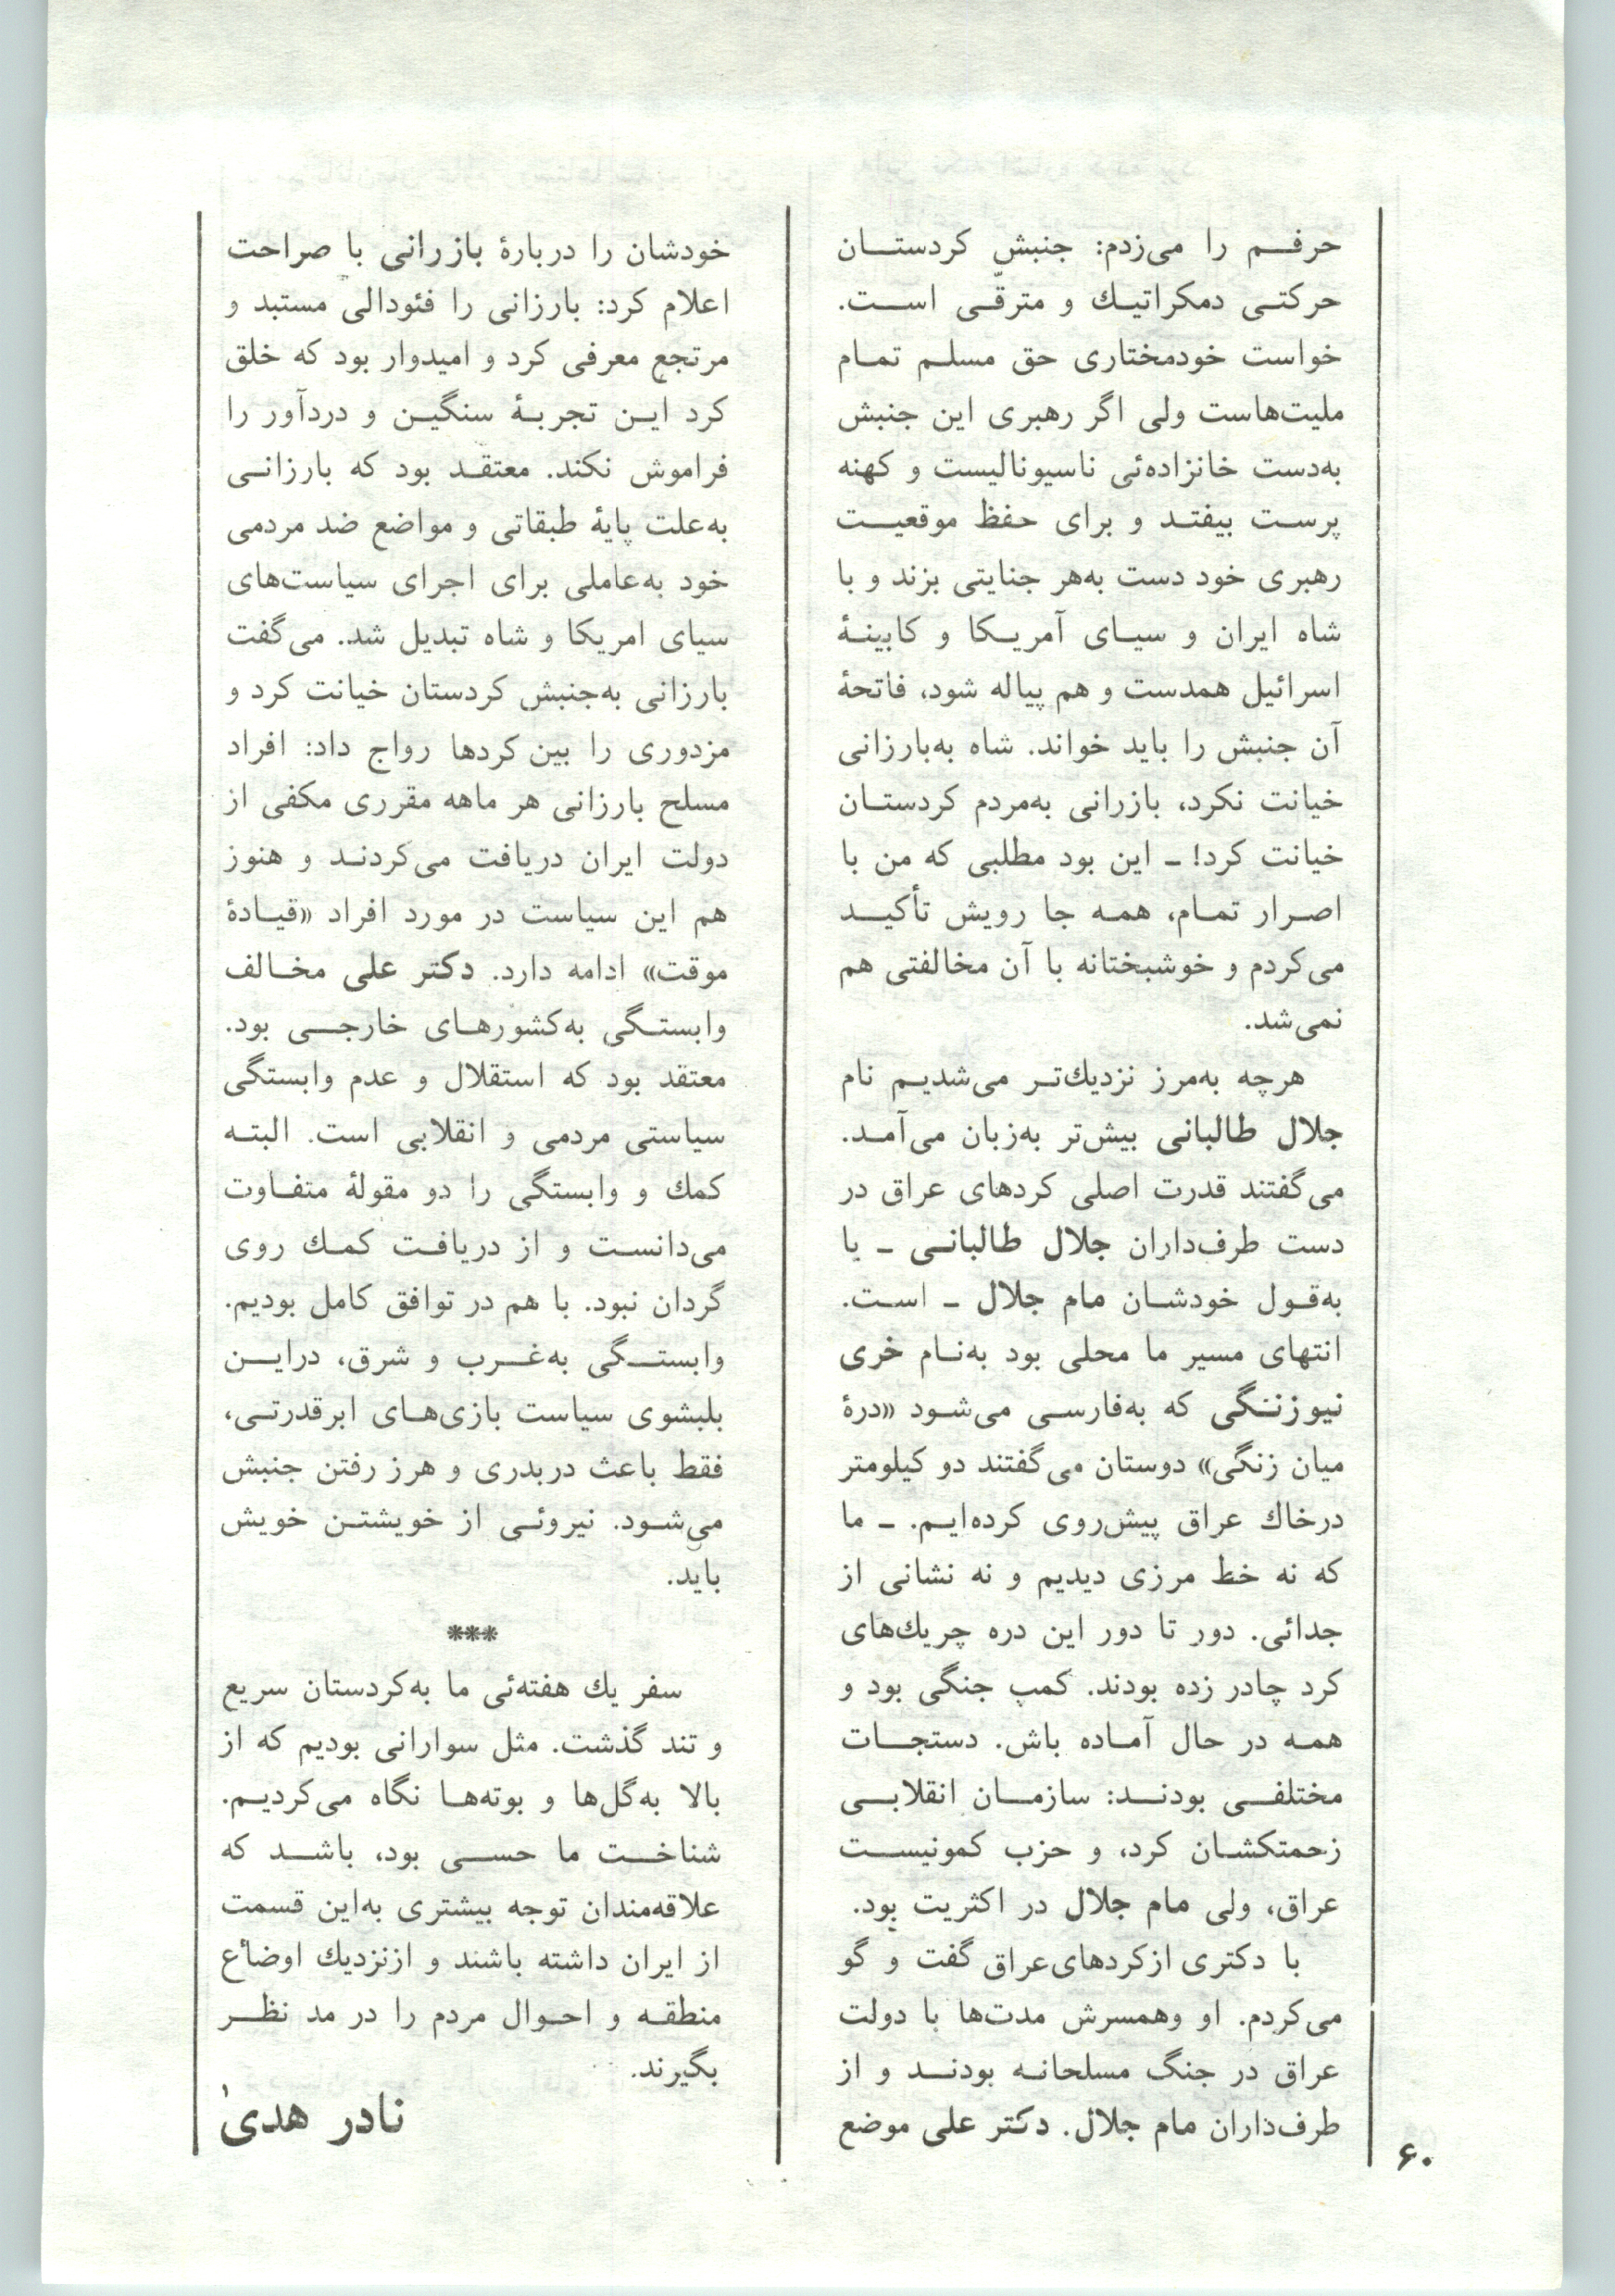 حرفـم را می‌زدم: جنبش کردستـان
حرکتـی دمکراتیـك و مترقّـی اسـت.
خواست خودمختاری حق مسلـم تمـام
ملیت‌هاست ولی اگر رهبری این جنبش
به‌دست خانزاده‌ئی ناسیونالیست و کهنه
پرسـت بیفتـد و برای حفظ موقعیـت
رهبری خود دست به‌هر جنایتی بزند و با
شاه ایران و سیـای آمریـکا و کابینـهٔ
اسرائیل همدست و هم پیاله شود، فاتحهٔ
آن جنبش را باید خواند. شاه به‌بارزانی
خیانت نکرد، بازرانی به‌مردم کردستـان
خیانت کرد! ـ این بود مطلبی که من با
اصـرار تمـام، همـه جا رویش تأکیـد
می‌کردم و خوشبختانه با آن مخالفتی هم
نمی‌شد.
هرچه به‌مرز نزدیك‌تـر می‌شدیـم نام
جلال طالبانی بیش‌تر به‌زبان می‌آمـد.
می‌گفتند قدرت اصلی کردهای عراق در
دست طرف‌داران جلال طالبانـی ـ یا
به‌قـول خودشـان مام جلال ـ اسـت.
انتهای مسیر ما محلی بود به‌نـام خری
نیوزنـگی که به‌فارسـی می‌شـود «درهٔ
میان زنگی» دوستان می‌گفتند دو کیلومتر
درخاك عراق پیش‌روی کرده‌ایـم. ـ ما
که نه خط مرزی دیدیم و نه نشانی از
جدائی. دور تا دور این دره چریك‌های
کرد چادر زده بودند. کمپ جنگی بود و
همـه در حال آمـاده باش. دستجـات
مختلفـی بودنـد: سازمـان انقلابـی
زحمتکشـان کرد، و حزب کمونیسـت
عراق، ولی مام جلال در اکثریت بود.
با دکتری ازکردهای‌عراق گفت و گو
می‌کردم. او وهمسرش مدت‌ها با دولت
عراق در جنگ مسلحانـه بودنـد و از
طرف‌داران مام جلال. دکتر علی موضع
خودشان را دربارهٔ بازرانی با صراحت
اعلام کرد: بارزانی را فئودالی مستبد و
مرتجع معرفی کرد و امیدوار بود که خلق
کرد ایـن تجربـهٔ سنگیـن و دردآور را
فراموش نکند. معتقـد بود که بارزانـی
به‌علت پایهٔ طبقاتی و مواضع ضد مردمی
خود به‌عاملی برای اجرای سیاست‌های
سیای امریکا و شاه تبدیل شد. می‌گفت
بارزانی به‌جنبش کردستان خیانت کرد و
مزدوری را بین کردها رواج داد: افراد
مسلح بارزانی هر ماهه مقرری مکفی از
دولت ایران دریافت می‌کردنـد و هنوز
هم این سیاست در مورد افراد «قیـادهٔ
موقت» ادامه دارد. دکتر علی مخـالف
وابستـگی به‌کشورهـای خارجـی بود.
معتقد بود که استقلال و عدم وابستگی
سیاستی مردمی و انقلابی است. البتـه
کمك و وابستگی را دو مقولهٔ متفـاوت
می‌دانسـت و از دریافـت کمـك روی
گردان نبود. با هم در توافق کامل بودیم.
وابستـگی به‌غـرب و شرق، درایـن
بلبشوی سیاست بازی‌هـای ابرقدرتـی،
فقط باعث دربدری و هرز رفتن جنبش
می‌شـود. نیروئـی از خویشتـن خویش
باید.
***
سفر یك هفته‌ئی ما به‌کردستان سریع
و تند گذشت. مثل سوارانی بودیم که از
بالا به‌گل‌ها و بوته‌هـا نگاه می‌کردیـم.
شناخـت ما حسـی بود، باشـد که
علاقه‌مندان توجه بیشتری به‌این قسمت
از ایران داشته باشند و ازنزدیك اوضاع
منطقـه و احـوال مردم را در مد نظـر
بگیرند.
نادر هدیٰ
۶۰